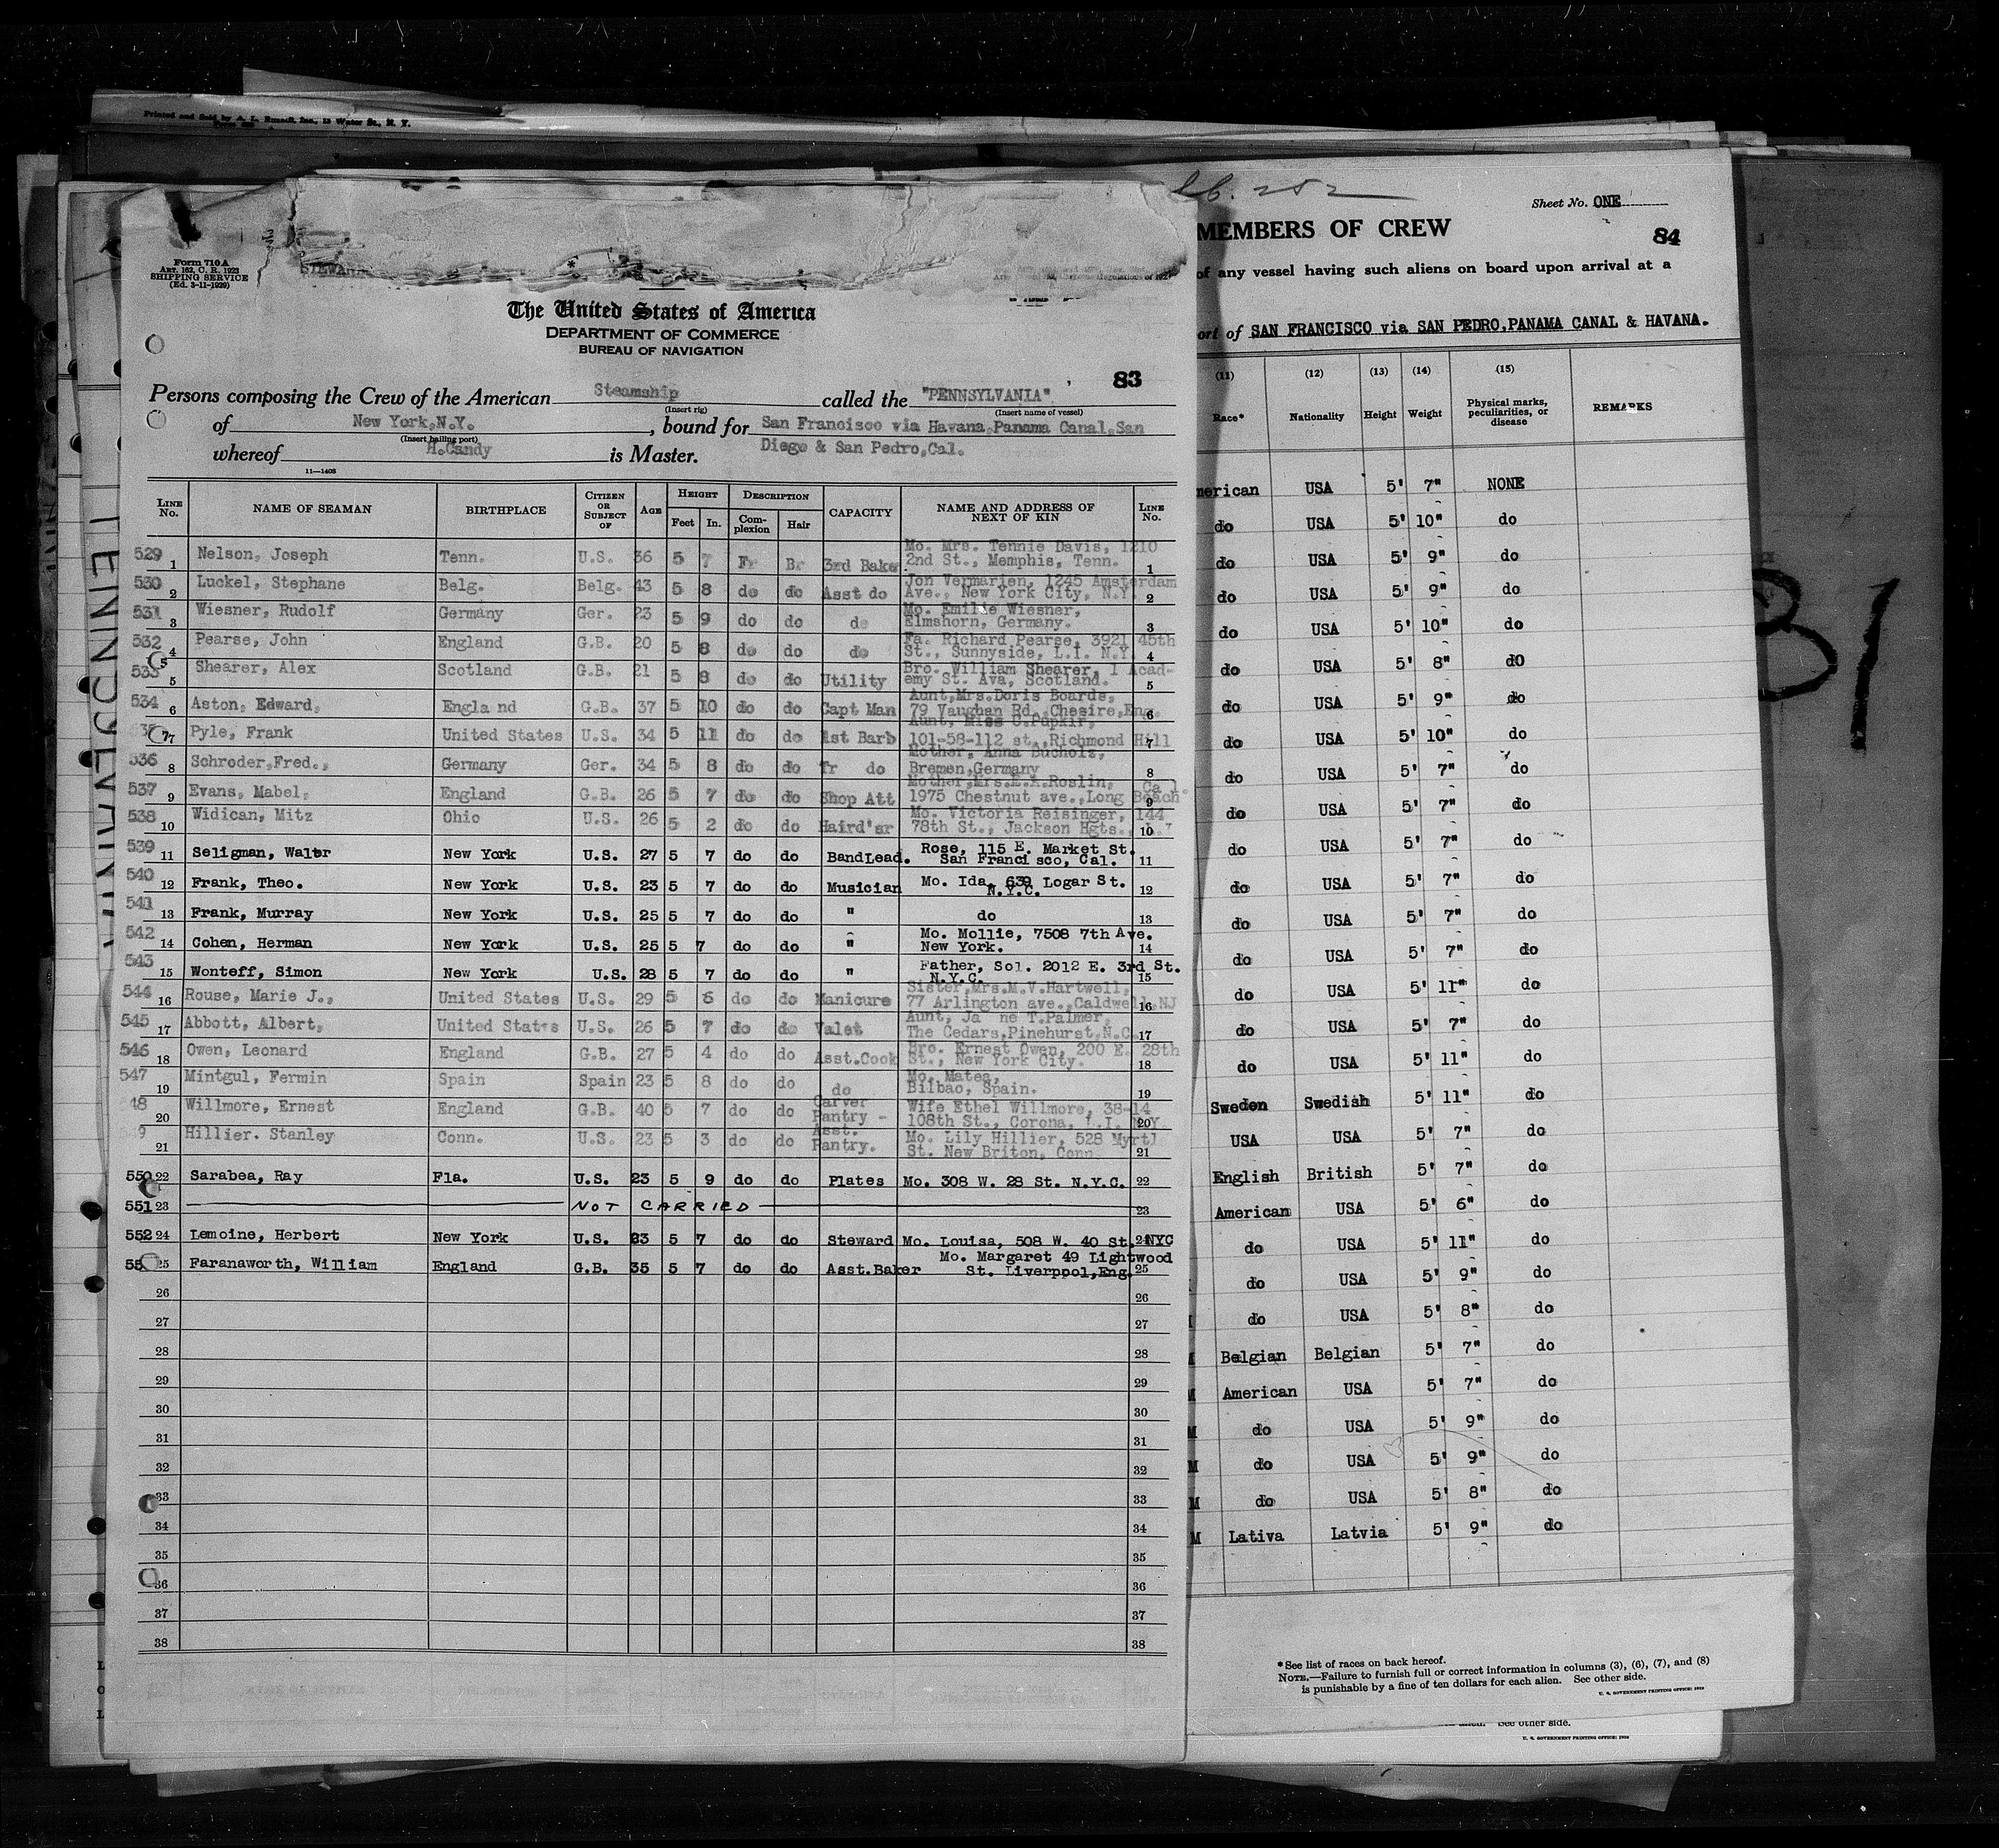 Printed and Sold by A. L. Russell, Inc., 15 Water St., N. Y.
Form 710 A
ART. 162, C. R. 1923
SHIPPING SERVICE
(Ed. 3-11-1929)
The United States of America
DEPARTMENT OF COMMERCE
BUREAU OF NAVIGATION
83
Persons composing the Crew of the American Steamship called the "PENNSYLVANIA"
(Insert rig) (Insert name of vessel)
of New York,N.Y. , bound for San Francisco via Havana,Panama Canal,San
(Insert hailing port)
whereof H.Candy is Master. Diego & San Pedro,Cal.
11—1408
LINE No. NAME OF SEAMAN BIRTHPLACE CITIZEN OR SUBJECT OF AGE HEIGHT Feet In. DESCRIPTION Com-plexion Hair CAPACITY NAME AND ADDRESS OF NEXT OF KIN LINE No.
529 1 Nelson, Joseph Tenn. U.S. 36 5 7 Fr Br 3rd Baker Mo. Mrs. Tennie Davis, 1210 2nd St., Memphis, Tenn. 1
530 2 Luckel, Stephane Belg. Belg. 43 5 8 do do Asst do Jon Vermarien, 1245 Amsterdam Ave., New York City, N.Y. 2
531 3 Wiesner, Rudolf Germany Ger. 23 5 9 do do do Mo. Emilie Wiesner, Elmshorn, Germany. 3
532 4 Pearse, John England G.B. 20 5 8 do do do Fa. Richard Pearse, 3921 45th St., Sunnyside, L.I. N.Y. 4
533 5 Shearer, Alex Scotland G.B. 21 5 8 do do Utility Bro. William Shearer, 1 Acad-emy St. Ava, Scotland. 5
534 6 Aston, Edward, Engla nd G.B. 37 5 10 do do Capt Man Aunt,Mrs.Doris Boards, 79 Vaughan Rd.,Chesire,Eng. 6
7 Pyle, Frank United States U.S. 34 5 11 do do 1st Barb Aunt, Miss C.Pupkir, 101-58-112 st.,Richmond Hill 7
536 8 Schroder,Fred., Germany Ger. 34 5 8 do do Tr do Mother, Anna Bucholz, Bremen,Germany 8
537 9 Evans, Mabel, England G.B. 26 5 7 do do Shop Att Mother,Mrs.E.A.Roslin, 1975 Chestnut ave.,Long Beach Cal 9
538 10 Widican, Mitz Ohio U.S. 26 5 2 do do Haird'sr Mo. Victoria Reisinger, 144 78th St., Jackson Hgts., L.I 10
539 11 Seligman, Walter New York U.S. 27 5 7 do do BandLead. Rose, 115 E. Market St. San Franci sco, Cal. 11
540 12 Frank, Theo. New York U.S. 23 5 7 do do Musician Mo. Ida, 639 Logar St. N.Y.C. 12
541 13 Frank, Murray New York U.S. 25 5 7 do do " do 13
542 14 Cohen, Herman New York U.S. 25 5 7 do do " Mo. Mollie, 7508 7th Ave. New York. 14
543 15 Wonteff, Simon New York U.S. 28 5 7 do do " Father, Sol. 2012 E. 3rd St. N.Y.C. 15
544 16 Rouse, Marie J., United States U.S. 29 5 6 do do Manicure Sister,Mrs.M.V.Hartwell, 77 Arlington ave.,Caldwell,NJ 16
545 17 Abbott, Albert, United States U.S. 26 5 7 do do Valet Aunt, Ja ne T.Palmer, The Cedars,Pinehurst,N.C. 17
546 18 Owen, Leonard England G.B. 27 5 4 do do Asst.Cook Bro. Ernest Owen, 200 E. 28th St., New York City. 18
547 19 Mintgul, Fermin Spain Spain 23 5 8 do do do Mo. Matea, Bilbao, Spain. 19
48 20 Willmore, Ernest England G.B. 40 5 7 do do Carver Pantry - Wife Ethel Willmore, 38-14 108th St., Corona, L.I. N.Y. 20
9 21 Hillier. Stanley Conn. U.S. 23 5 3 do do Asst. Pantry. Mo. Lily Hillier, 528 Myrtl St. New Briton, Conn. 21
550 22 Sarabea, Ray Fla. U.S. 23 5 9 do do Plates Mo. 308 W. 28 St. N.Y.C. 22
551 23 NOT CARRIED 23
552 24 Lemoine, Herbert New York U.S. 23 5 7 do do Steward Mo. Louisa, 508 W. 40 St. NYC 24
55 25 Faranaworth, William England G.B. 35 5 7 do do Asst.Baker Mo. Margaret 49 Lightwood St. Liverpool,Eng. 25
26 26
27 27
28 28
29 29
30 30
31 31
32 32
33 33
34 34
35 35
36 36
37 37
38 38
Sheet No. ONE
MEMBERS OF CREW
84
of any vessel having such aliens on board upon arrival at a
ort of SAN FRANCISCO via SAN PEDRO,PANAMA CANAL & HAVANA.
(11) (12) (13) (14) (15)
Race* Nationality Height Weight Physical marks, peculiarities, or disease REMARKS
merican USA 5' 7" NONE
do USA 5' 10" do
do USA 5' 9" do
do USA 5' 9" do
do USA 5' 10" do
do USA 5' 8" dO
do USA 5' 9" do
do USA 5' 10" do
do USA 5' 7" do
do USA 5' 7" do
do USA 5' 7" do
do USA 5' 7" do
do USA 5' 7" do
do USA 5' 7" do
do USA 5' 11" do
do USA 5' 7" do
do USA 5' 11" do
Sweden Swedish 5' 11" do
USA USA 5' 7" do
English British 5' 7" do
American USA 5' 6" do
do USA 5' 11" do
do USA 5' 9" do
do USA 5' 8" do
Belgian Belgian 5' 7" do
M American USA 5' 7" do
M do USA 5' 9" do
M do USA 5' 9" do
M do USA 5' 8" do
M Lativa Latvia 5' 9" do
*See list of races on back hereof.
NOTE.—Failure to furnish full or correct information in columns (3), (6), (7), and (8)
is punishable by a fine of ten dollars for each alien. See other side.
U. S. GOVERNMENT PRINTING OFFICE: 1929
See other side.
U. S. GOVERNMENT PRINTING OFFICE: 1929